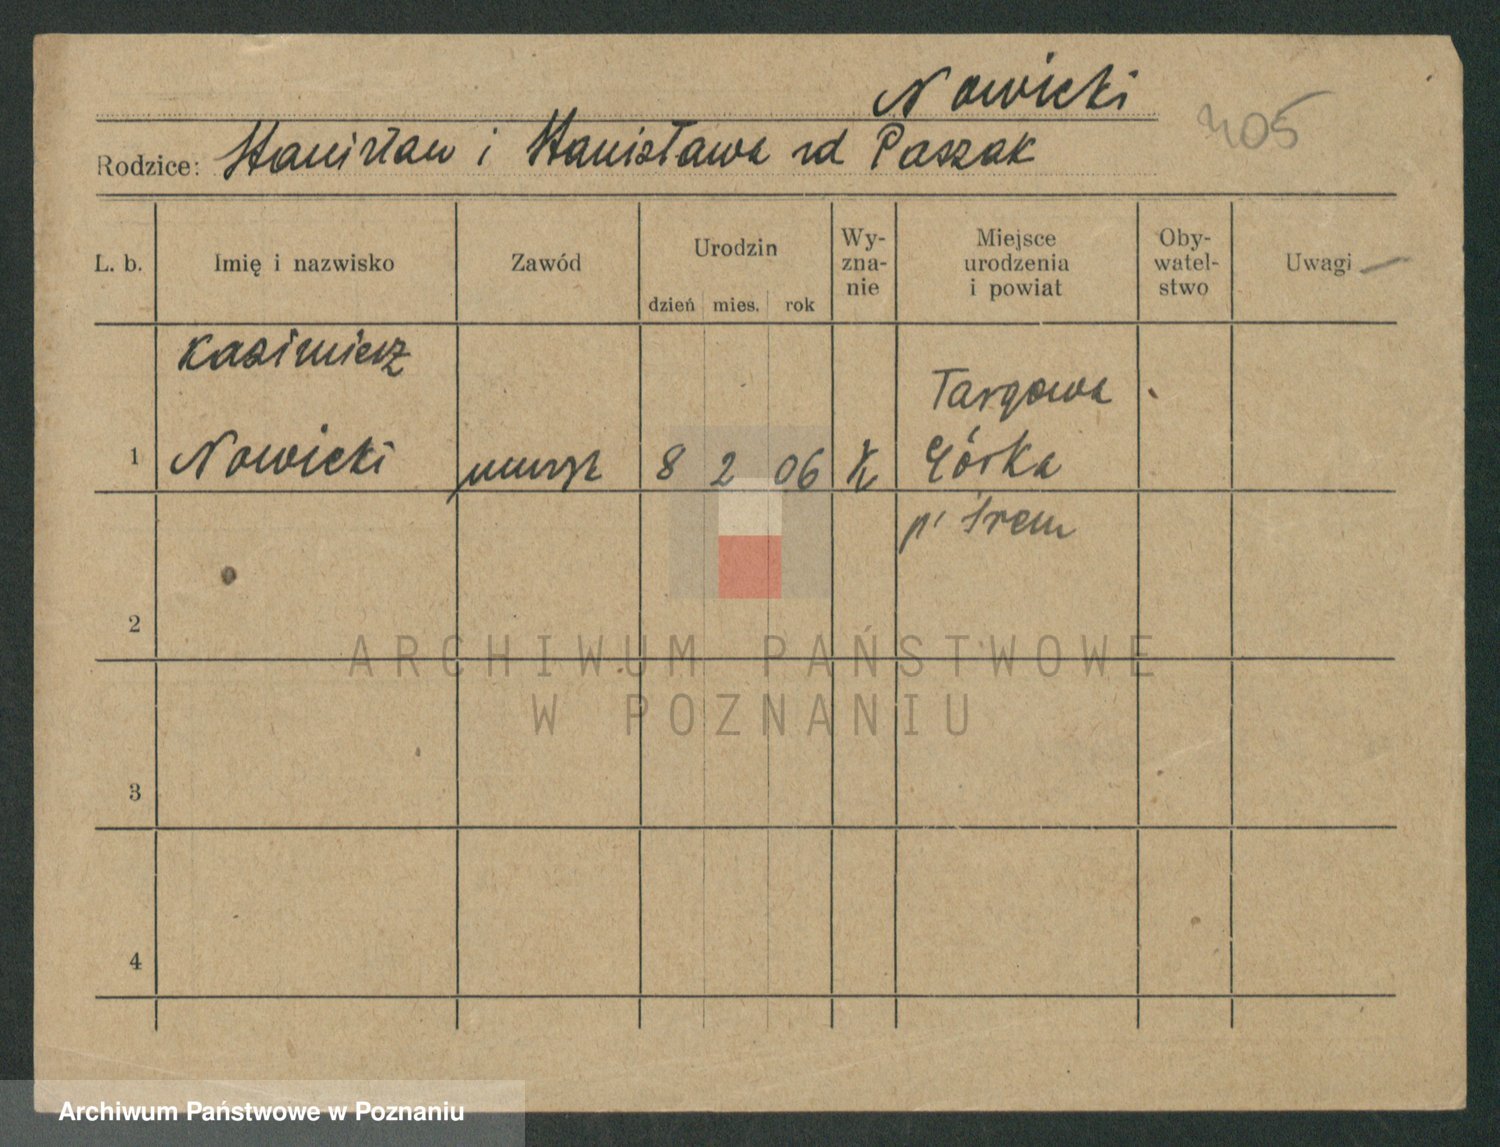 Nowicki
405
Rodzice: Stanisław i Stanisława zd Paszak
L. b. Imię i nazwisko Zawód Urodzin dzień mies. rok Wy-
zna-
nie Miejsce
urodzenia
i powiat Oby-
watel-
stwo Uwagi
Kazimierz
Targowa
1 Nowicki 8 2 06 K Górka
p. Śrem
2
ARCHIWUM PAŃSTWOWE
W POZNANIU
3
4
Archiwum Państwowe w Poznaniu